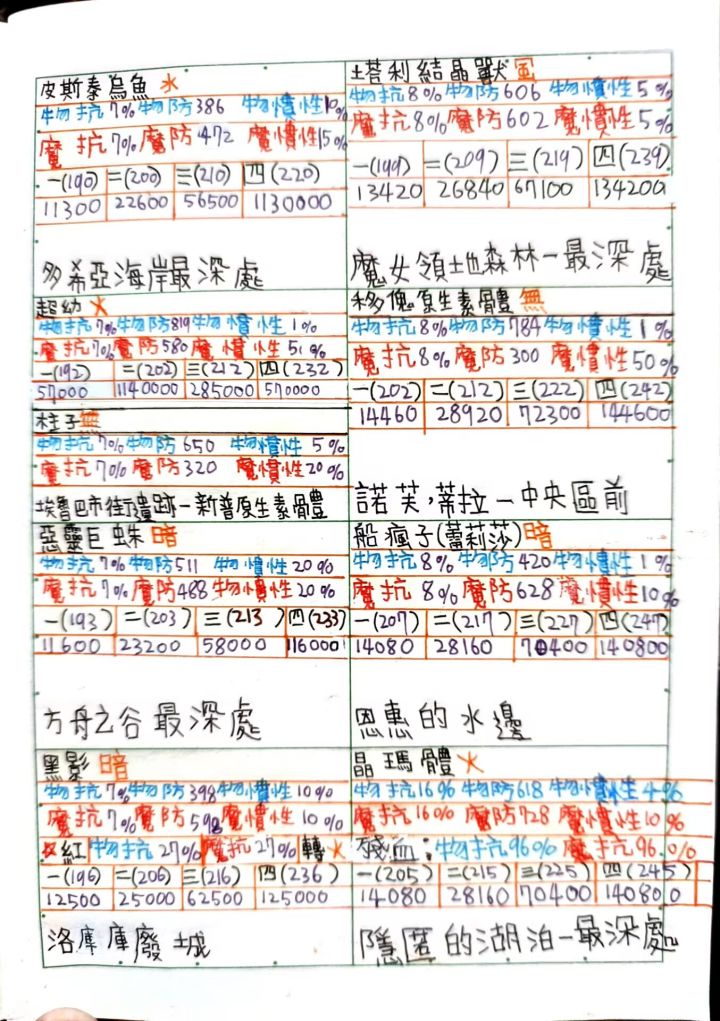 皮斯泰烏魚 水
物抗7% 物防386 物慣性10%
魔抗7% 魔防472 魔慣性15%
一(190) 二(200) 三(210) 四(220)
11300 22600 56500 1130000
多希亞海岸最深處
超幼 火
物抗7% 物防819 物慣性1%
魔抗7% 魔防580 魔慣性51%
一(192) 二(202) 三(212) 四(232)
57000 1140000 285000 570000
柱子 無
物抗7% 物防650 物慣性5%
魔抗7% 魔防320 魔慣性20%
埃魯巴市街遺跡-新普原生素骨體
惡靈巨蛛 暗
物抗7% 物防511 物慣性20%
魔抗7% 魔防468 物慣性20%
一(193) 二(203) 三(213) 四(233)
11600 23200 58000 116000
方舟之谷最深處
黑影 暗
物抗7% 物防398 物慣性10%
魔抗7% 魔防598 魔慣性10%
紅 物抗27% 魔抗27% 轉火
一(196) 二(206) 三(216) 四(236)
12500 25000 62500 125000
洛摩庫廢城
塔利結晶獸 風
物抗8% 物防606 物慣性5%
魔抗8% 魔防602 魔慣性5%
一(199) 二(209) 三(219) 四(239)
13420 26840 67100 134200
魔女領地森林-最深處
移傀原生素骨體 無
物抗8% 物防784 物慣性1%
魔抗8% 魔防300 魔慣性50%
一(202) 二(212) 三(222) 四(242)
14460 28920 72300 144600
諾芙,蒂拉-中央區前
船瘋子(蕾莉莎) 暗
物抗8% 物防420 物慣性1%
魔抗8% 魔防628 魔慣性10%
一(207) 二(217) 三(227) 四(247)
14080 28160 70400 140800
恩惠的水邊
晶瑪體 火
物抗16% 物防618 物慣性4%
魔抗16% 魔防728 魔慣性10%
殘血:物抗96% 魔抗96%
一(205) 二(215) 三(225) 四(245)
14080 28160 70400 140800
隱匿的湖泊-最深處